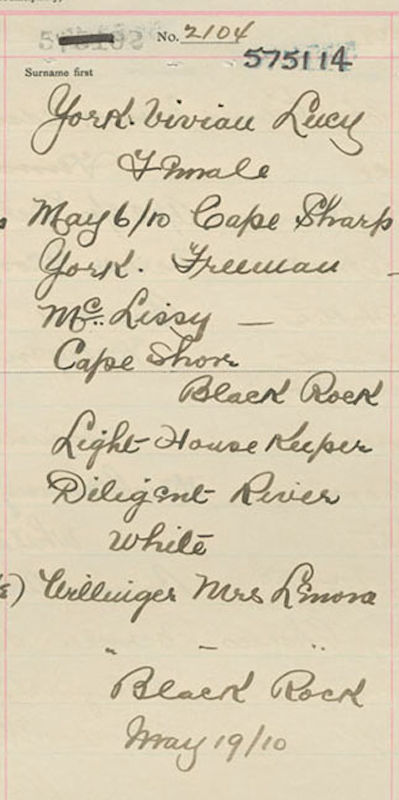 No. 2104
575114
Surname first
York. Vivian Lucy
Female
May 6/10 Cape Sharp
York. Freeman
Mc. Lissy —
Cape Shore
Black Rock
Light House Keeper
Diligent River
White
Willinger Mrs Lenora
" — "
Black Rock
May 19/10